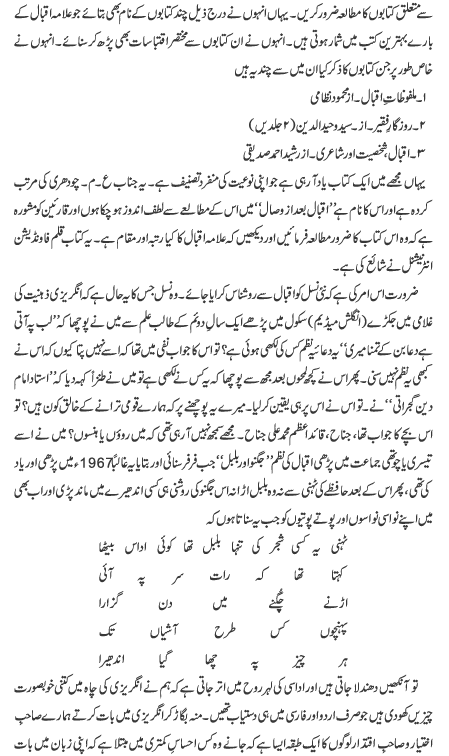 سے متعلق کتابوں کا مطالعہ ضرور کریں۔ یہاں انہوں نے درج ذیل چند کتابوں کے نام بھی بتائے جو علامہ اقبال کے
بارے بہترین کتب میں شمار ہوتی ہیں۔ انہوں نے ان کتابوں سے مختصر اقتباسات بھی پڑھ کر سنائے۔ انہوں نے
خاص طور پر جن کتابوں کا ذکر کیا ان میں سے چند یہ ہیں
۱۔ ملفوظاتِ اقبال۔ از محمود نظامی
۲۔ روزگارِ فقیر۔ از۔ سید وحید الدین (۲ جلدیں)
۳۔ اقبال، شخصیت اور شاعری۔ از رشید احمد صدیقی
یہاں مجھے میں ایک کتاب یاد آ رہی ہے جو اپنی نوعیت کی منفرد تصنیف ہے۔ یہ جناب ع۔م۔ چودھری کی مرتب
کردہ ہے اور اس کا نام ہے ’’اقبال بعد از وصال‘‘ میں اس کے مطالعے سے لطف اندوز ہو چکا ہوں اور قارئین کو مشورہ
ہے کہ وہ اس کتاب کا ضرور مطالعہ فرمائیں اور دیکھیں کہ علامہ اقبال کا کیا رتبہ اور مقام ہے۔ یہ کتاب قلم فاونڈیشن
انٹرنیشنل نے شائع کی ہے۔
ضرورت اس امر کی ہے کہ نئی نسل کو اقبال سے روشناس کرایا جائے۔ وہ نسل جس کا یہ حال ہے کہ انگریزی ذہنیت کی
غلامی میں جکڑے (انگلش میڈیم) سکول میں پڑھے ایک سال دوئم کے طالب علم سے میں نے پوچھا کہ ’’لب پہ آتی
ہے دعا بن کے تمنا میری‘‘ یہ دعائیہ نظم کس کی لکھی ہوئی ہے؟ تو اس کا جواب نفی میں تھا کہ اسے نہیں پتا کیوں کہ اس نے
کبھی یہ نظم نہیں سنی۔ پھر اس نے کچھ لمحوں بعد مجھ سے پوچھا کہ یہ کس نے لکھی ہے تو میں نے طنزاً کہہ دیا کہ ’’استاد امام
دین گجراتی‘‘ نے۔ تو اس نے اس پر ہی یقین کر لیا۔ میرے یہ پوچھنے پر کہ ہمارے قومی ترانے کے خالق کون ہیں؟ تو
اس بچے کا جواب تھا، جناح، قائد اعظم محمد علی جناح۔ مجھے سمجھ نہیں آ رہی تھی کہ میں روؤں یا ہنسوں؟ میں نے اسے
تیسری یا چوتھی جماعت میں پڑھی اقبال کی نظم ’’جگنو اور بلبل‘‘ جب فر فر سنائی اور بتایا یہ غالباً 1967ء میں پڑھی اور یاد
کی تھی، پھر اس کے بعد حافظے کی ٹہنی سے نہ وہ بلبل اڑا نہ اس جگنو کی روشنی ہی کسی اندھیرے میں ماند پڑی اور اب بھی
میں اپنے نواسی نواسوں اور پوتے پوتیوں کو جب یہ سناتا ہوں کہ
ٹہنی پہ کسی شجر کی تنہا بلبل تھا کوئی اداس بیٹھا
کہتا تھا کہ رات سر پہ آئی
اڑنے چُگنے میں دن گزارا
پہنچوں کس طرح آشیاں تک
ہر چیز پہ چھا گیا اندھیرا
تو آنکھیں دھندلا جاتی ہیں اور اداسی کی لہر روح میں اتر جاتی ہے کہ ہم نے انگریزی کی چاہ میں کتنی خوبصورت
چیزیں کھو دی ہیں جو صرف اردو اور فارسی میں ہی دستیاب تھیں۔ منہ بگاڑ کر انگریزی میں بات کرتے ہمارے صاحبِ
اختیار و صاحبِ اقتدار لوگوں کا ایک طبقہ ایسا ہے کہ جانے وہ کس احساسِ کمتری میں مبتلا ہے کہ اپنی زبان میں بات